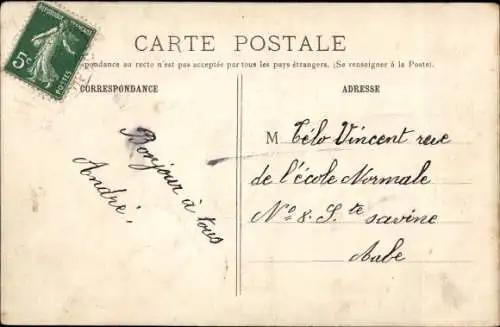 RÉPUBLIQUE FRANÇAISE
5c
POSTES
CARTE POSTALE
pondance au recto n'est pas acceptée par tous les pays étrangers. (Se renseigner à la Poste).
CORRESPONDANCE
Bonjour à tous
André.
ADRESSE
M Télo Vincent rue
de l'école Normale
No 8. Ste savine
Aube